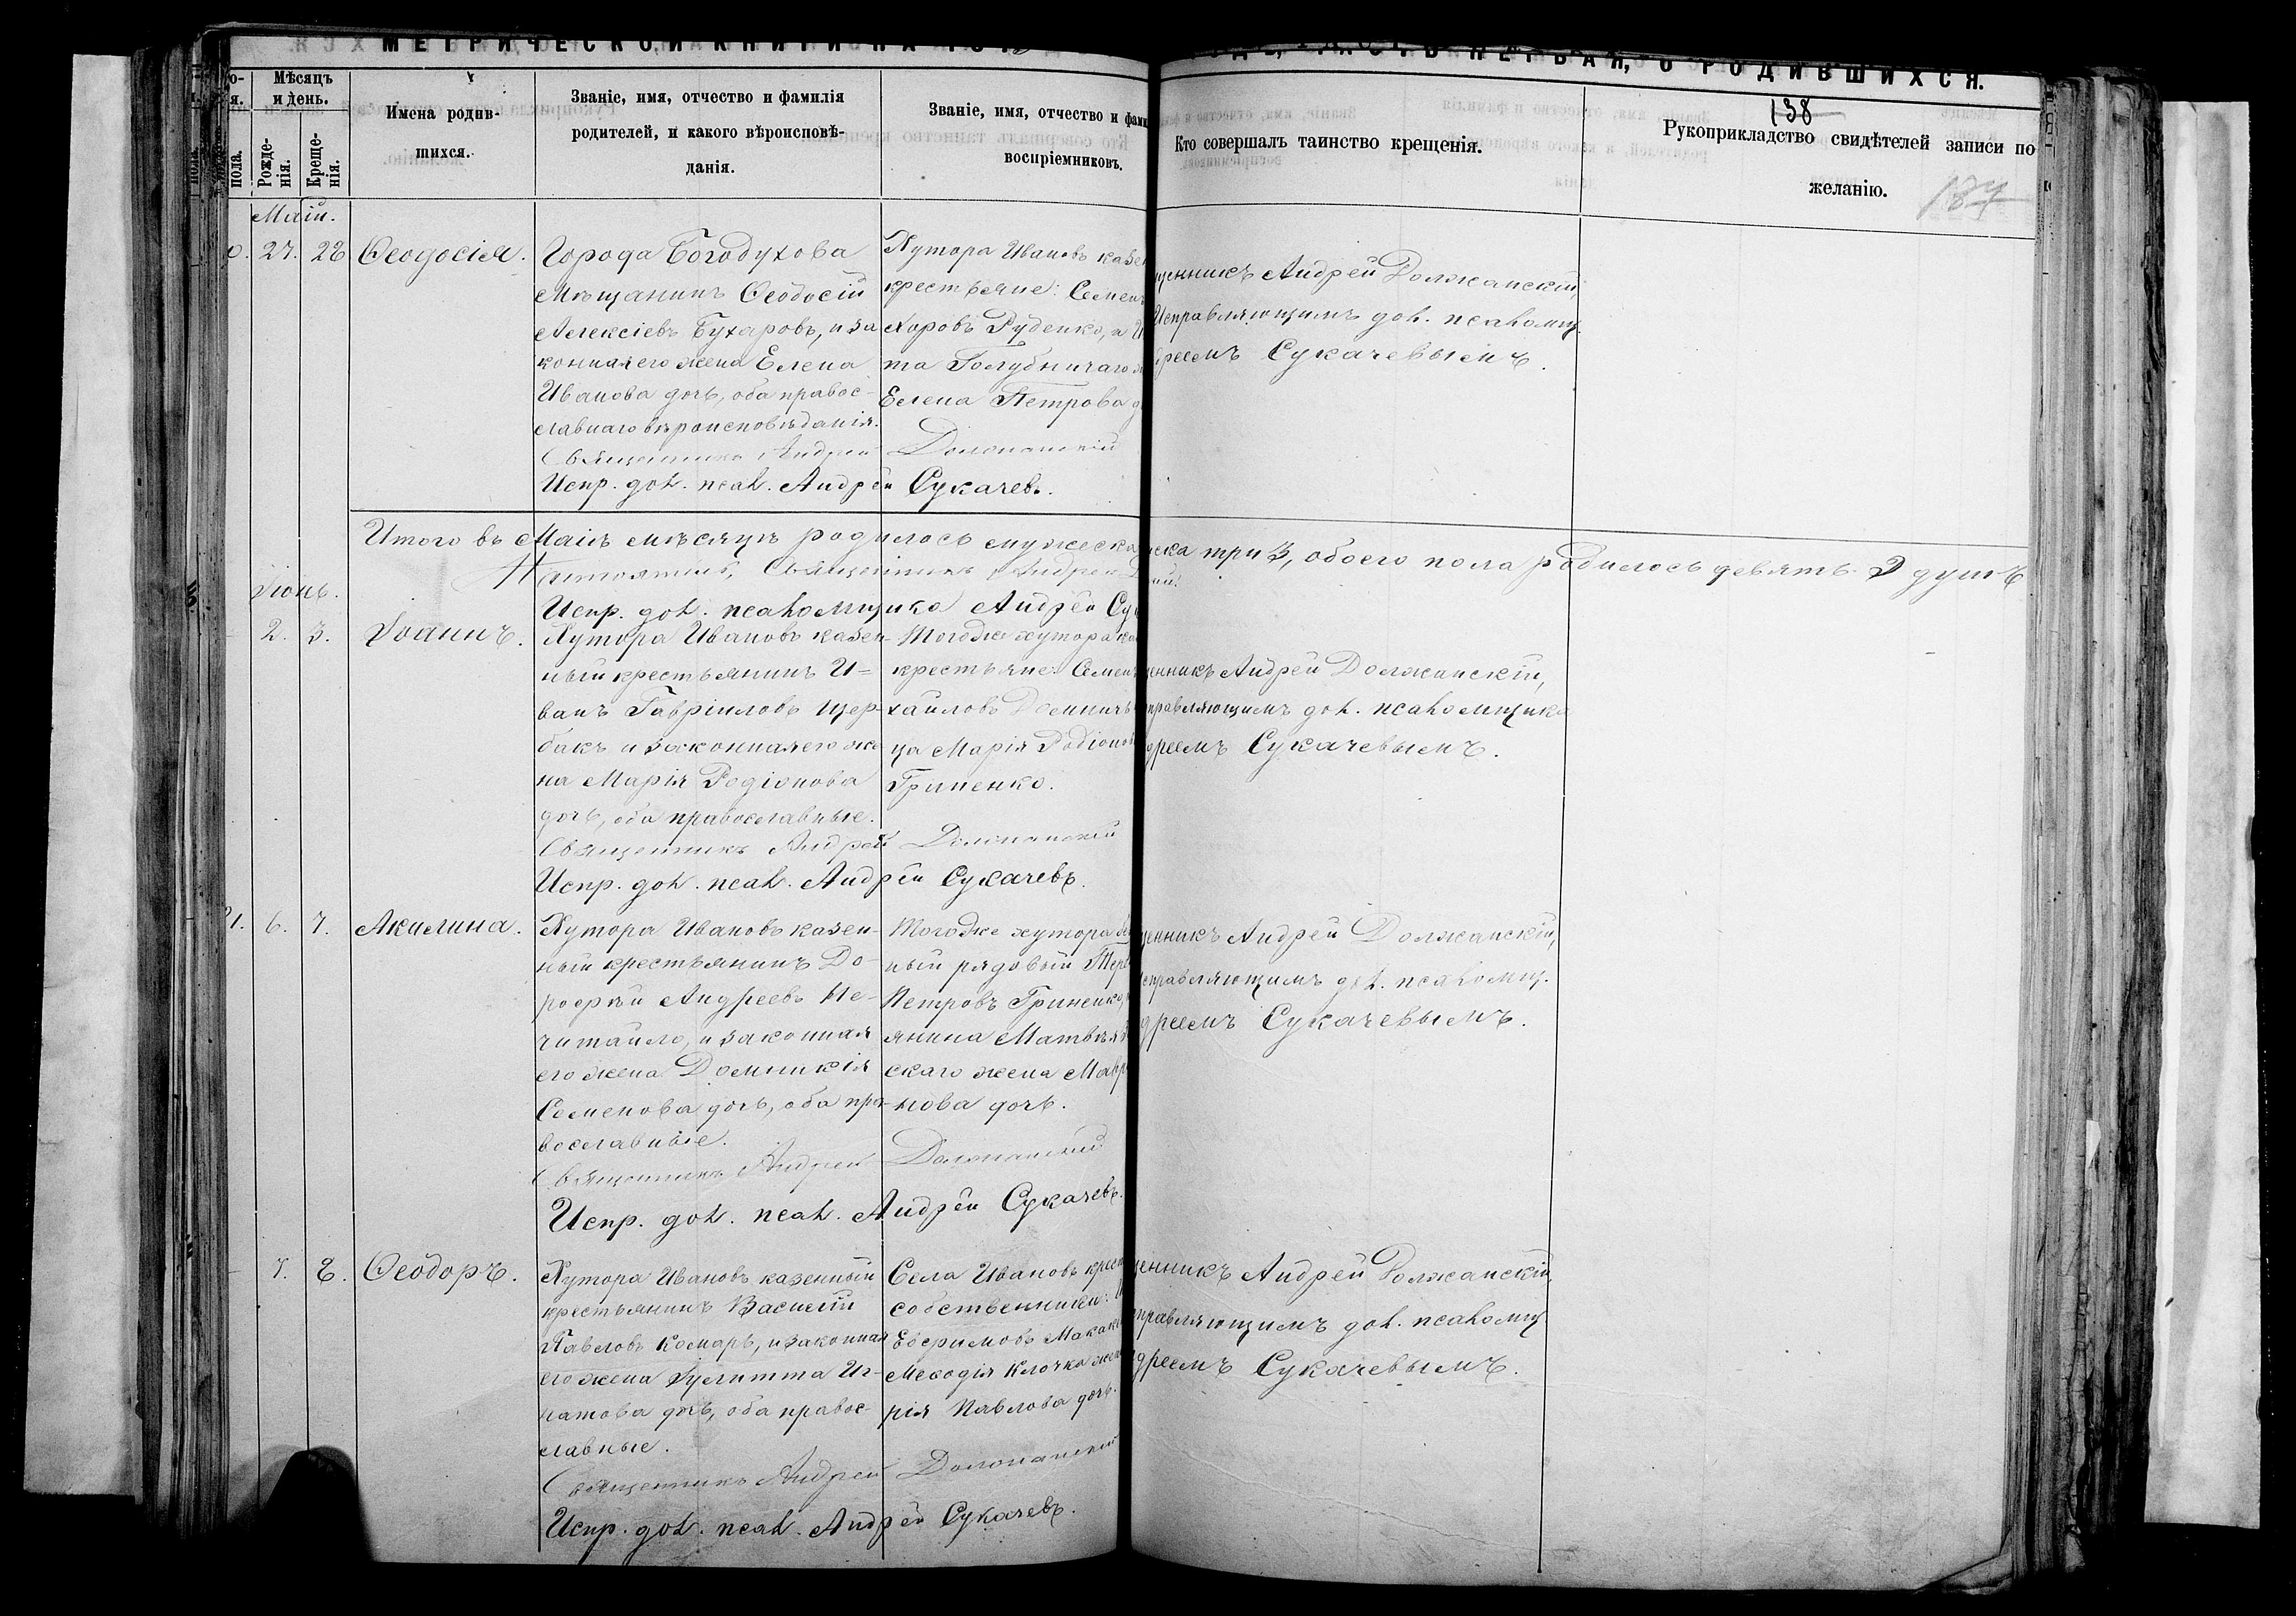 МЕТРИЧЕСКОЙ КНИГИ НА
ЧАСТЬ ПЕРВАЯ, О РОДИВШИХСЯ.
138
187
Мѣсяцъ
и день.
пола.
Рожде-
нія.
Креще-
нія.
Имена родив-
шихся.
Званіе, имя, отчество и фамилія
родителей, и какого вѣроисповѣ-
данія.
Званіе, имя, отчество и фами
воспріемниковъ.
Кто совершалъ таинство крещенія.
Рукоприкладство свидѣтелей записи по
желанію.
Май.
27. 28 Ѳеодосія.
Города Богодухова
мѣщанинъ Ѳеодосій
Алексіевъ Бухаровъ, и за
конная его жена Елена
Иванова дочь, оба правос-
лавнаго вѣроисповѣданія.
Священникъ Андрей Должанскій
Испр. дол. псал. Андрей Сукачевъ.
Хутора Ивановъ казен
крестьяне: Семен
харовъ Руденко, и И
та Голубничаго ж
Елена Петрова д
щенникъ Андрей Должанскій,
Исправляющимъ дол. псаломщ.
дреемъ Сукачевымъ.
Итого въ Маѣ мѣсяцѣ родилось мужеска
нска три 3, обоего пола родилось девять 9 душъ
Священникъ Андрей Д
Испр. дол. псаломщика Андрей Су
Іюнь.
2. 3. Іоаннъ.
Хутора Ивановъ казен-
ный крестьянинъ И=
ванъ Гавріиловъ Щер-
бакъ и законная его же
на Марія Родіонова
дочь, оба православные.
Священникъ Андрей Должанскій
Испр. дол. псал. Андрей Сукачевъ.
Тогоже хутора ка
крестьяне: Семен
хайловъ
ца Марія Родіонов
Гриненко.
щенникъ Андрей Должанскій,
правляющимъ дол. псаломщика
дреемъ Сукачевымъ.
6. 7. Акилина.
Хутора Ивановъ казен-
ный крестьянинъ До-
роѳей Андреевъ Не-
читайло, и законная
его жена Домникія
Семенова дочь, оба пра-
вославные.
Священникъ Андрей Должанскій
Испр. дол. псал. Андрей Сукачевъ.
Тогоже хутора
ный рядовый Тер
Петровъ Гриненко,
янина Матвѣя
скаго жена Мавр
нова дочь.
щенникъ Андрей Должанскій,
справляющимъ дол. псаломщ.
дреемъ Сукачевымъ.
7. 8. Ѳеодоръ.
Хутора Ивановъ казенный
крестьянинъ Василій
Павловъ Комаръ, и законная
его жена Іулитта Иг-
натова дочь, оба правос-
лавные.
Священникъ Андрей Должанскій
Испр. дол. псал. Андрей Сукачевъ.
Села Ивановъ крест
собственники:
Евѳимовъ
Меѳодія Клочка жен
рія Павлова дочь.
щенникъ Андрей Должанскій,
правляющимъ дол. псаломщ
дреемъ Сукачевымъ.